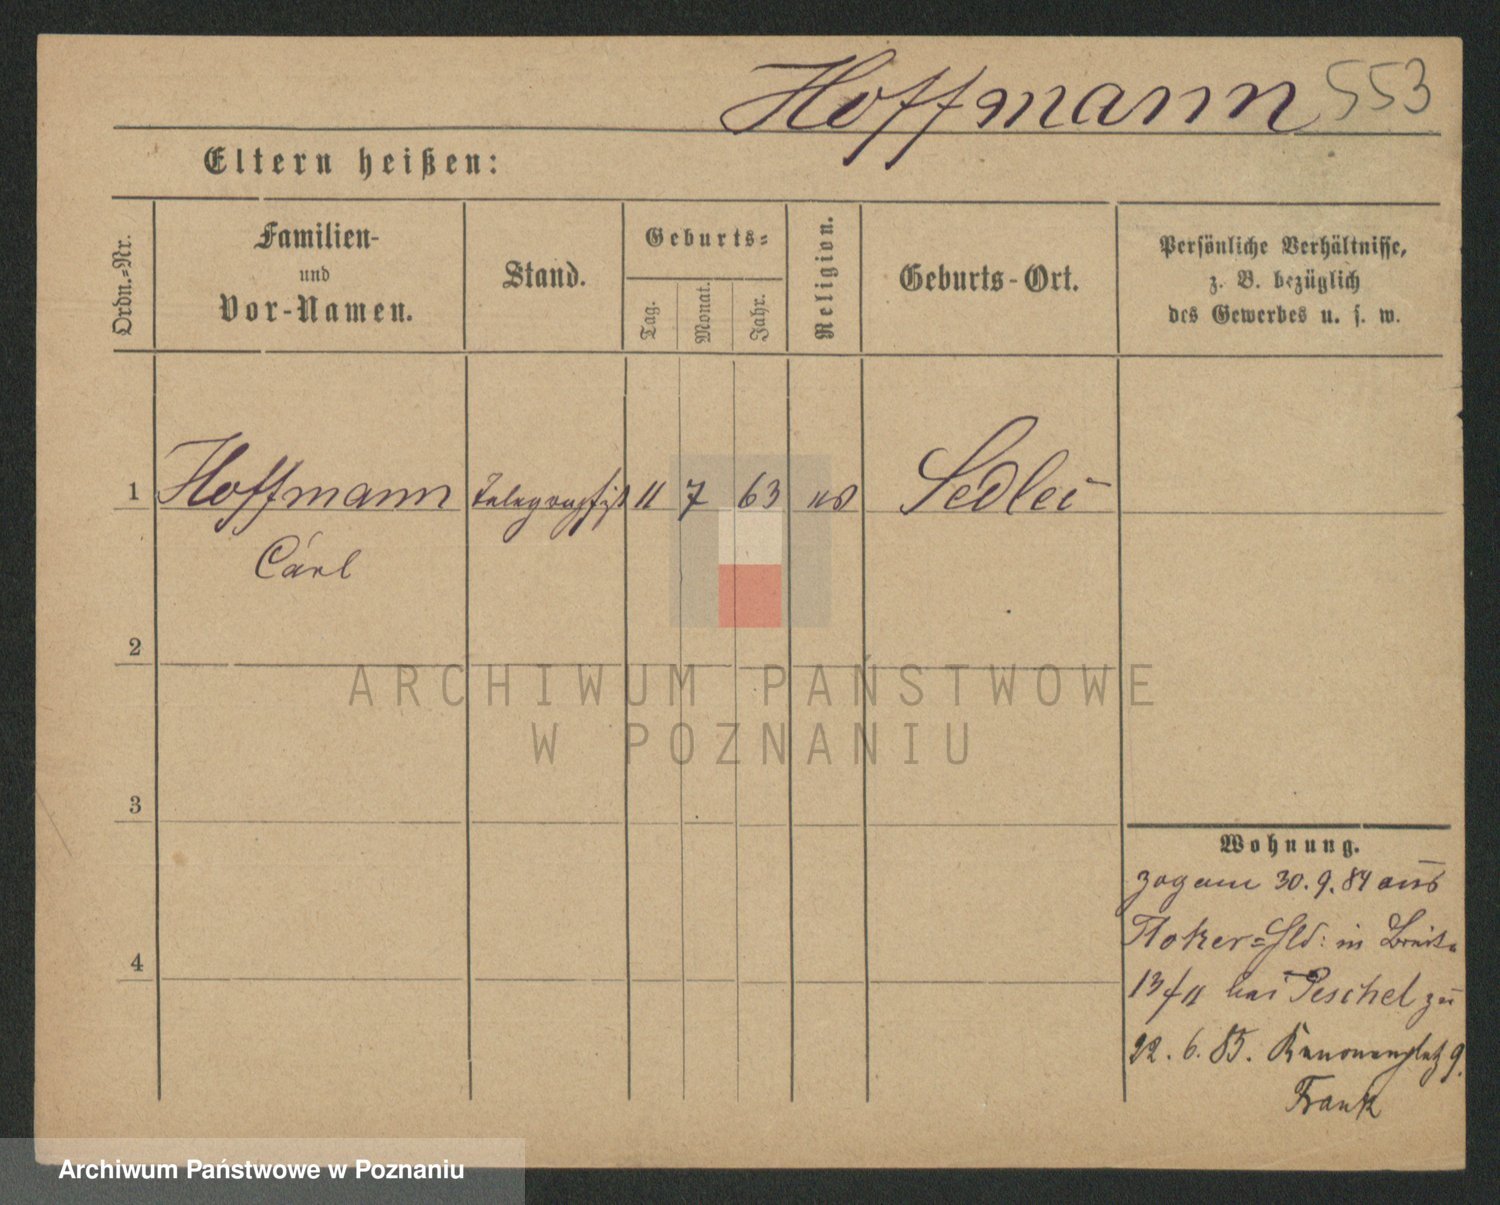 Hoffmann 553
Eltern heißen:
Ordn.-Nr.
Familien-
und
Vor-Namen.
Stand.
Geburts-
Tag.
Monat.
Jahr.
Religion.
Geburts-Ort.
Persönliche Verhältnisse,
z. B. bezüglich
des Gewerbes u. s. w.
1 Hoffmann Telegraphist 11 7 63 Sedlec
Carl
2
3
4
Wohnung.
zog am 30.9.84 aus
in
13/11 bei Peschel zu
22.6.85. Kanonenplatz 9.
Frank
ARCHIWUM PAŃSTWOWE
W POZNANIU
Archiwum Państwowe w Poznaniu